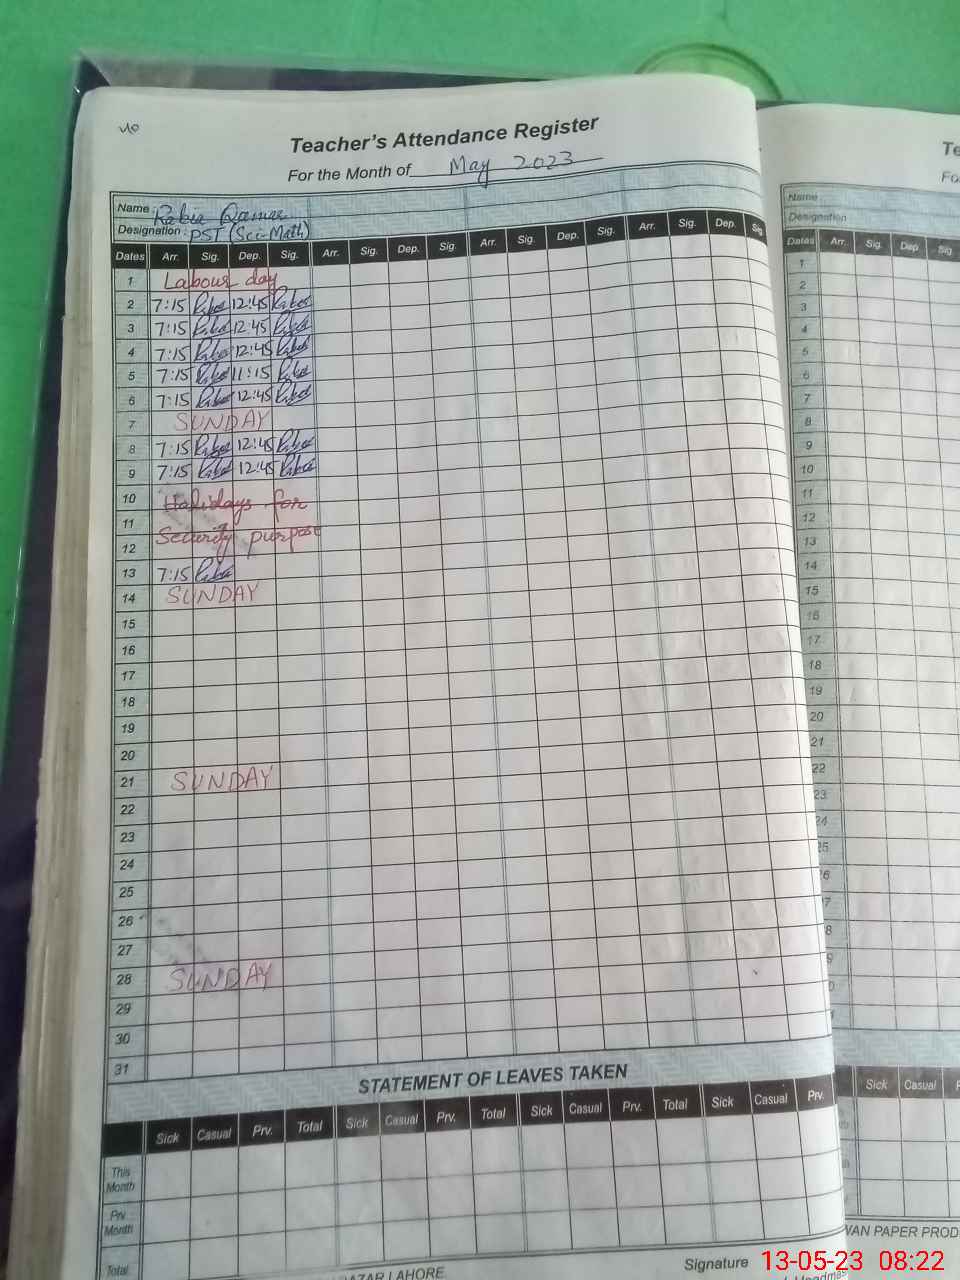 Teacher's Attendance Register
For the Month of May 2023
Name : Rabia Qamar
Designation : PST (Sci-Math)
Dates Arr. Sig. Dep. Sig. Arr. Sig. Dep. Sig. Arr. Sig. Dep. Sig. Arr. Sig. Dep. Sig.
1 Labour day
2 7:15 Rabia 12:45 Rabia
3 7:15 Rabia 12:45 Rabia
4 7:15 Rabia 12:45 Rabia
5 7:15 Rabia 11:15 Rabia
6 7:15 Rabia 12:45 Rabia
7 SUNDAY
8 7:15 Rabia 12:45 Rabia
9 7:15 Rabia 12:45 Rabia
10 Holidays for
11
12 Security purpose
13 7:15 Rabia
14 SUNDAY
15
16
17
18
19
20
21 SUNDAY
22
23
24
25
26
27
28 SUNDAY
29
30
31
STATEMENT OF LEAVES TAKEN
Sick Casual Prv. Total Sick Casual Prv. Total Sick Casual Prv. Total Sick Casual Prv.
This Month
Prv. Month
Total
BAZAR LAHORE
Signature
Te
Fo
Name
Designation
Dates Arr. Sig. Dep. Sig
1
2
3
4
5
6
7
8
9
10
11
12
13
14
15
16
17
18
19
20
21
22
23
24
25
6
7
8
9
0
Sick Casual P
WAN PAPER PROD
13-05-23 08:22